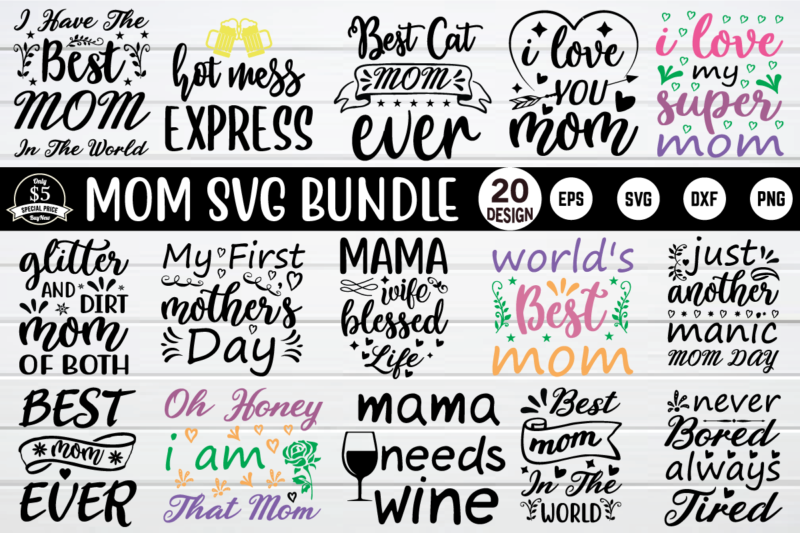 I Have The
Best
MOM
In The World
hot mess
EXPRESS
Best Cat
MOM
ever
i love
YOU
mom
i love
my
super
mom
Only
$5
SPECIAL PRICE
BuyNow
MOM SVG BUNDLE
20
DESIGN
EPS
SVG
DXF
PNG
glitter
AND DIRT
mom
OF BOTH
My First
mother's
Day
MAMA
wife
blessed
Life
world's
Best
mom
just
another
manic
MOM DAY
BEST
mom
EVER
Oh Honey
i am
That Mom
mama
needs
wine
Best
mom
In The
WORLD
never
Bored
always
Tired